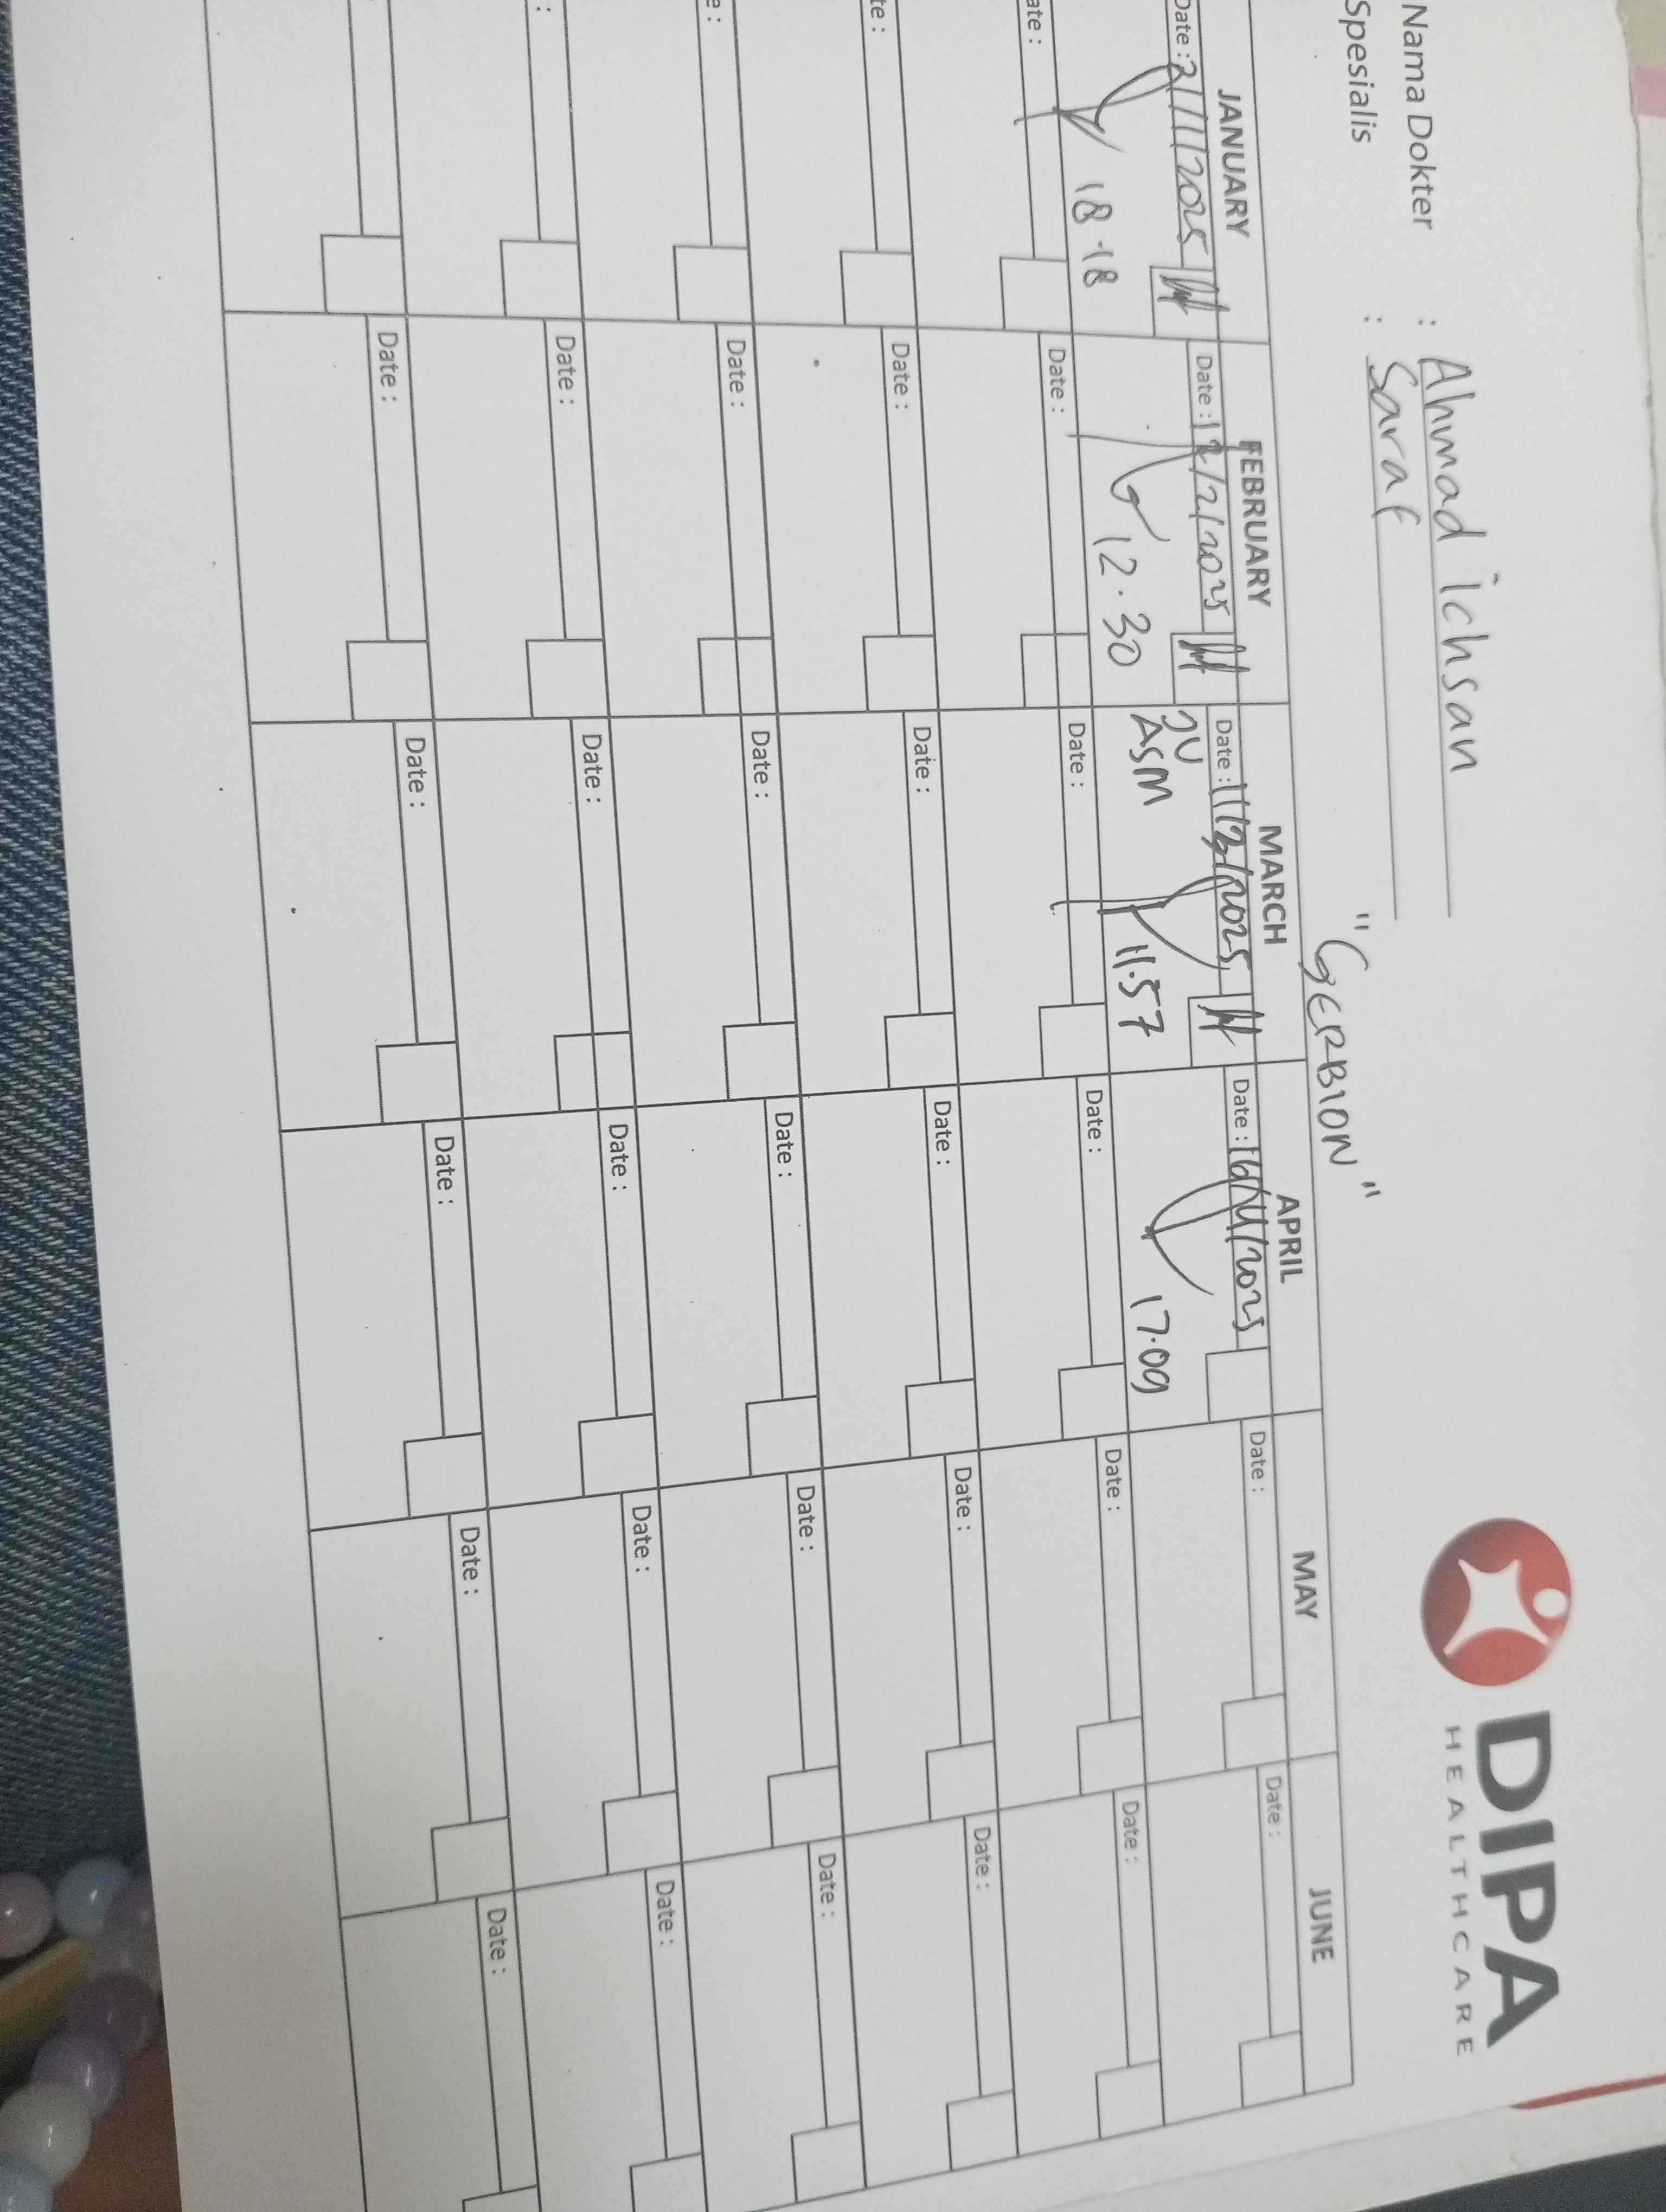 Nama Dokter : Ahmad ichsan
Spesialis : Saraf
"GERBION"
DIPA
HEALTHCARE
JANUARY FEBRUARY MARCH APRIL MAY JUNE
Date : 2/1/2025 Date : 12/2/2025 Date : 11/3/2025 Date : 16/4/2025 Date : Date :
JV
ASM
18.18 12.30 11.57 17.09
ate : Date : Date : Date : Date : Date :
te : Date : Date : Date : Date : Date :
e : Date : Date : Date : Date : Date :
: Date : Date : Date : Date : Date :
Date : Date : Date : Date : Date :